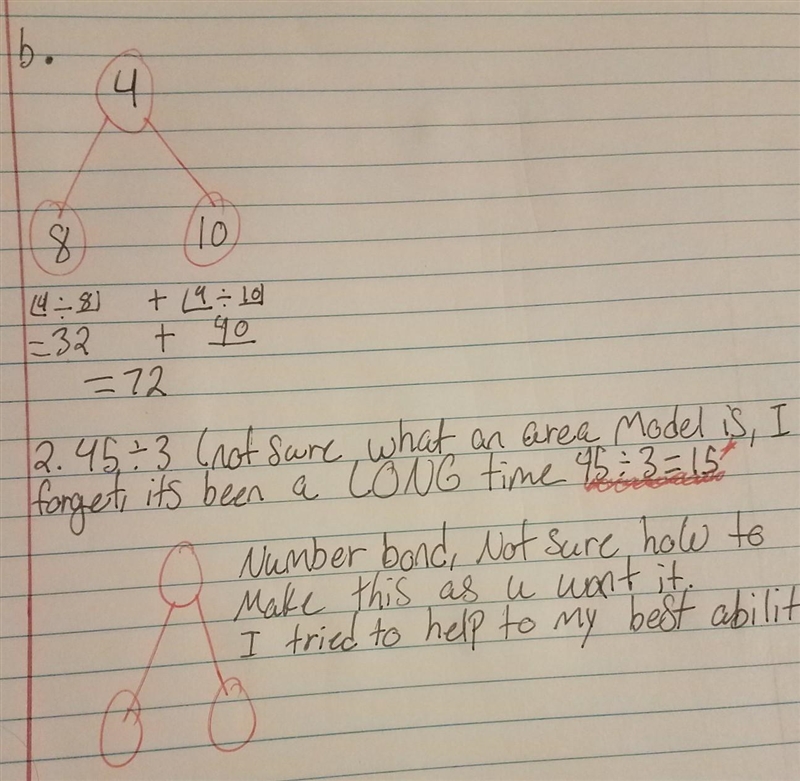 b.
4
8 10
(4 ÷ 8) + (4 ÷ 10)
= 32 + 40
= 72
2. 45 ÷ 3 (not sure what an area Model is, I
forget, its been a LONG time 45 ÷ 3 = 15*
Number bond, Not sure how to
Make this as u want it.
I tried to help to my best abilit